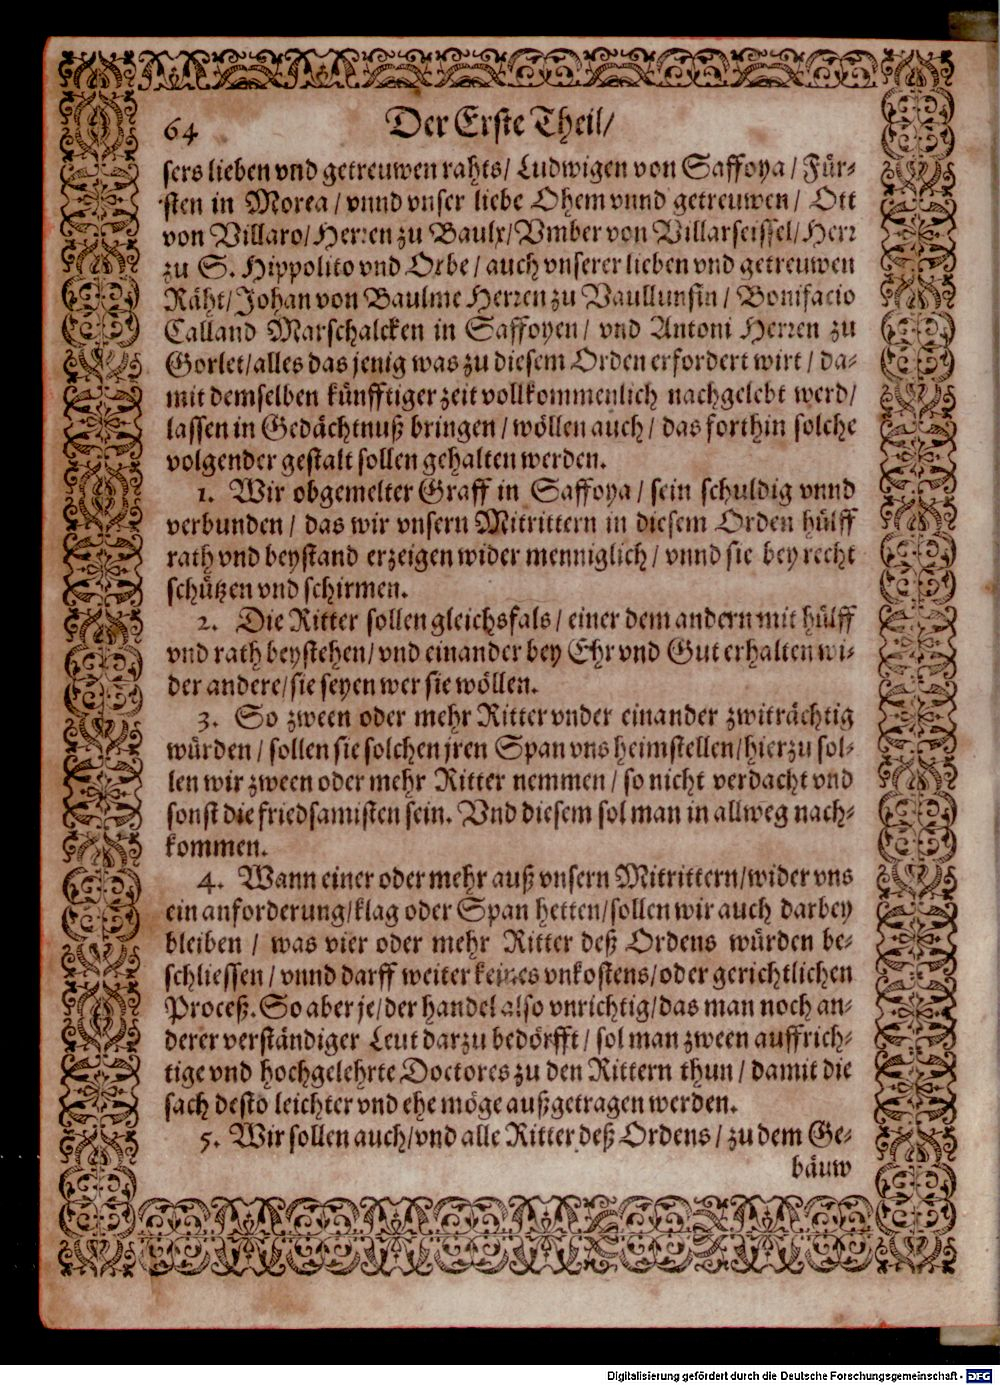 64 Der Erste Theil/
sers lieben vnd getreuwen rahts/ Ludwigen von Saffoya/ Für-
sten in Morea/ vnnd vnser liebe Ohem vnnd getreuwen/ Ott
von Villaro/ Herren zu Baulx/ Vmber von Villarseissel/ Herr
zu S. Hippolito vnd Orbe/ auch vnserer lieben vnd getreuwen
Räht/ Johan von Baulme Herren zu Vaullunsin/ Bonifacio
Calland Marschalcken in Saffoyen/ vnd Antoni Herren zu
Gorlet/ alles das jenig was zu diesem Orden erfordert wirt/ da-
mit demselben künfftiger zeit vollkommenlich nachgelebt werd/
lassen in Gedächtnuß bringen/ wöllen auch/ das forthin solche
volgender gestalt sollen gehalten werden.
1. Wir obgemelter Graff in Saffoya/ sein schuldig vnnd
verbunden/ das wir vnsern Mitrittern in diesem Orden hülff
rath vnd beystand erzeigen wider menniglich/ vnnd sie bey recht
schützen vnd schirmen.
2. Die Ritter sollen gleichsfals/ einer dem andern mit hülff
vnd rath beystehen/ vnd einander bey Ehr vnd Gut erhalten wi-
der andere/ sie seyen wer sie wöllen.
3. So zween oder mehr Ritter vnder einander zwiträchtig
würden/ sollen sie solchen jren Span vns heimstellen/ hierzu sol-
len wir zween oder mehr Ritter nemmen/ so nicht verdacht vnd
sonst die friedsamisten sein. Vnd diesem sol man in allweg nach-
kommen.
4. Wann einer oder mehr auß vnsern Mitrittern/ wider vns
ein anforderung/ klag oder Span hetten/ sollen wir auch darbey
bleiben/ was vier oder mehr Ritter deß Ordens würden be-
schliessen/ vnnd darff weiter keines vnkostens/ oder gerichtlichen
Proceß. So aber je/ der handel also vnrichtig/ das man noch an-
derer verständiger Leut darzu bedörfft/ sol man zween auffrich-
tige vnd hochgelehrte Doctores zu den Rittern thun/ damit die
sach desto leichter vnd ehe möge außgetragen werden.
5. Wir sollen auch/ vnd alle Ritter deß Ordens/ zu dem Ge-
bäuw
Digitalisierung gefördert durch die Deutsche Forschungsgemeinschaft - DFG